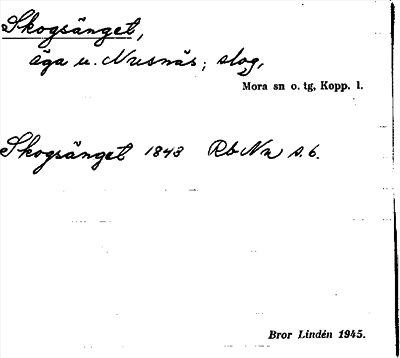 Skogsänget,
äga u. Nusnäs; slog,
Mora sn o. tg, Kopp. l.
Skogsänget 1843 Rb Nn s. 6.
Bror Lindén 1945.